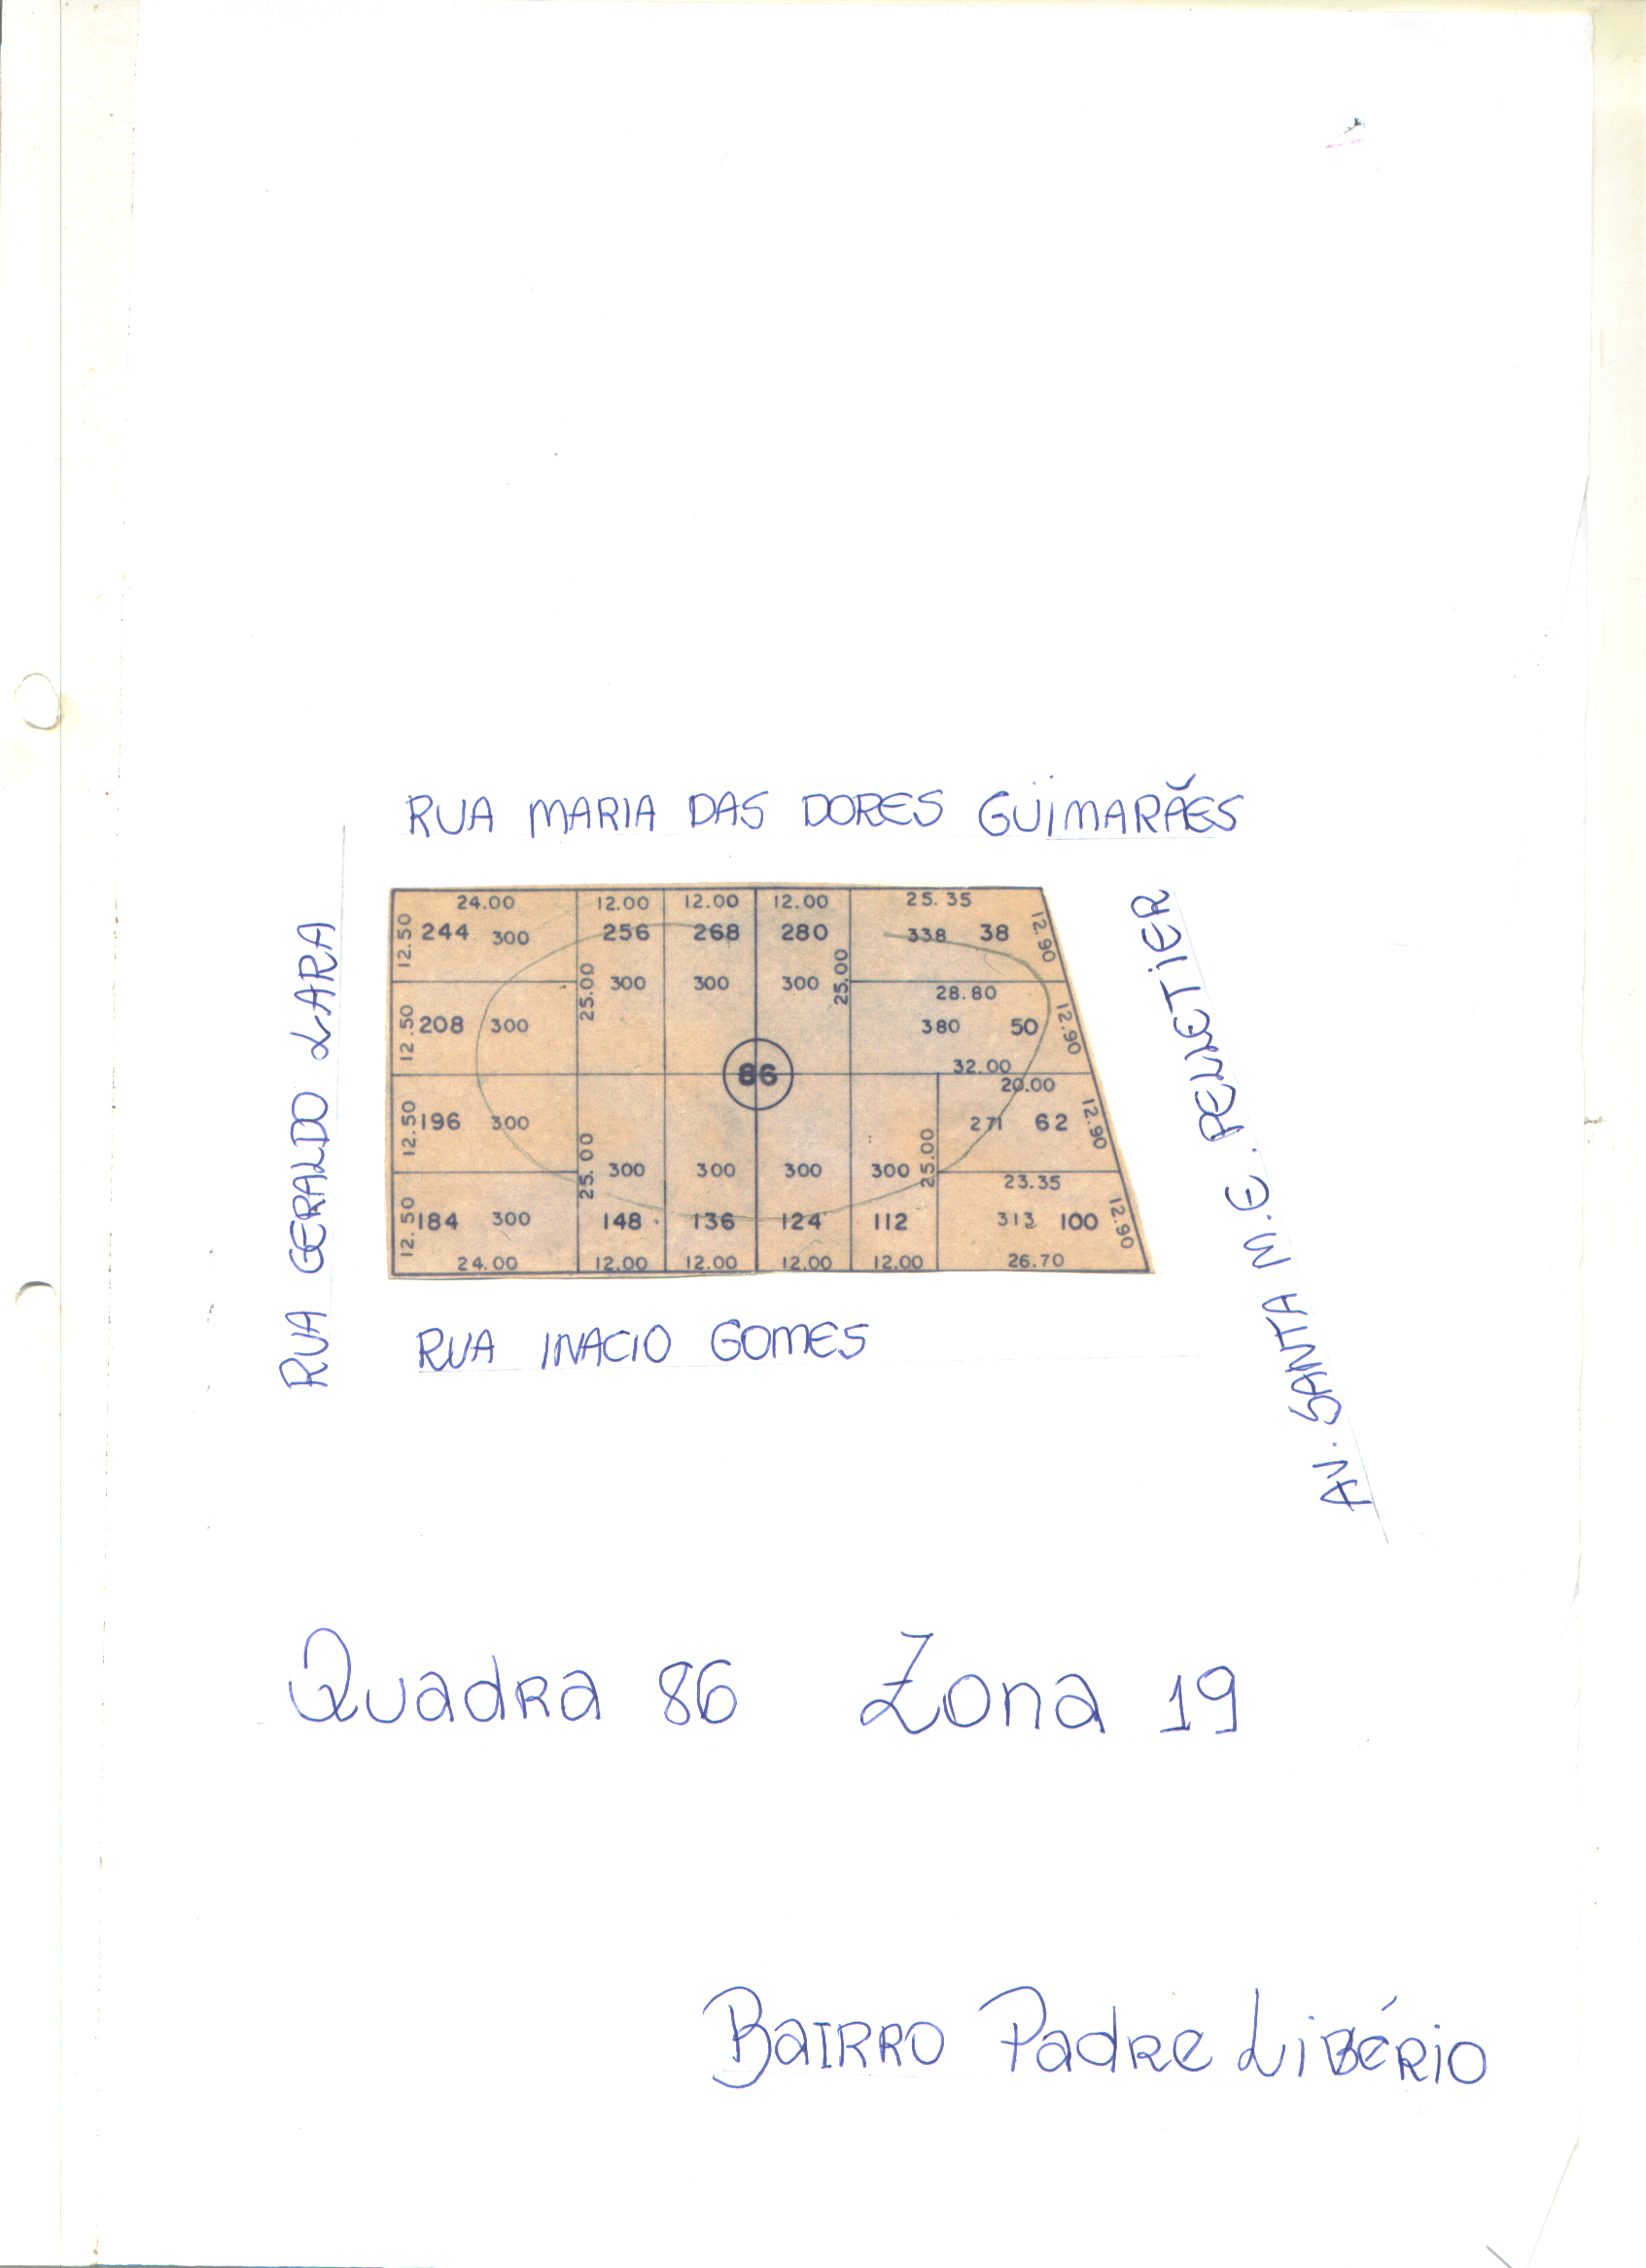 RUA MARIA DAS DORES GUIMARÃES
RUA GERALDO LARA
24.00 12.00 12.00 12.00 25.35
12.50 244 300 256 268 280 338 38 12.90
25.00 300 300 300 25.00
28.80
12.50 208 300 380 50 12.90
86
32.00
20.00
12.50 196 300 271 62 12.90
25.00 300 300 300 300 25.00
23.35
12.50 184 300 148 136 124 112 313 100 12.90
24.00 12.00 12.00 12.00 12.00 26.70
AV. SANTA M.E. PELLETIER
RUA INACIO GOMES
Quadra 86 Zona 19
BAIRRO Padre LIBÉRIO